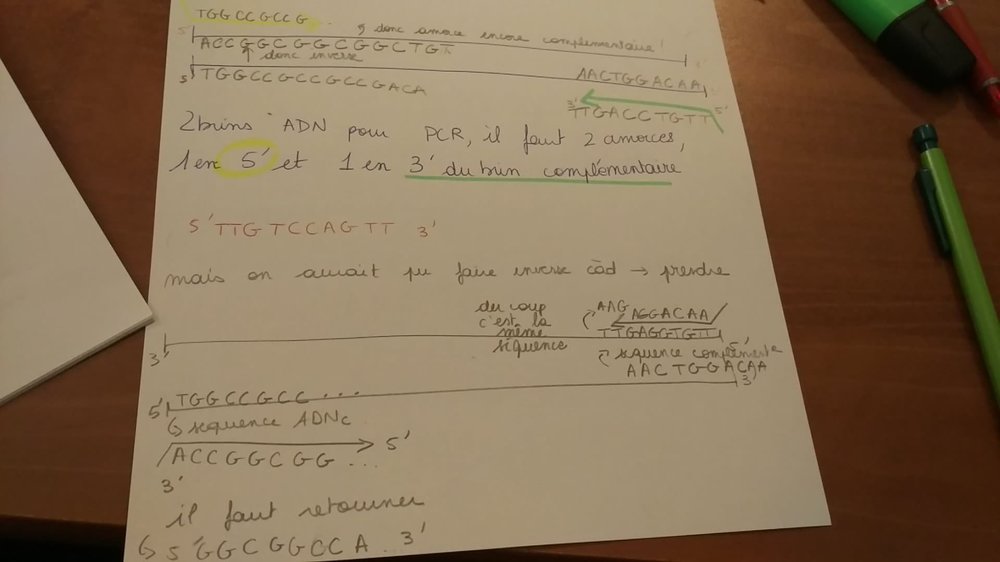 TGGCCGCCG...
5' donc amorce encore complémentaire!
ACCGGCGGCGGCTGT
donc inverse
AACTGGACAA
5' TGGCCGCCGCCGACA
3' TTGACCTGTT 5'
2 brins ADN pour PCR, il faut 2 amorces,
1 en 5' et 1 en 3' du brin complémentaire
5' TTGTCCAGTT 3'
mais on aurait pu faire inverse càd → prendre
du coup
c'est la
même
séquence
AAG AGGACAA
TTGAGGTGTT
3' 5'
séquence complémente
AACTGGACAA
5' TGGCCGCC... 3'
séquence ADNc
5'
ACCGGCGG...
3'
il faut retourner
5' GGCGGCCA.. 3'